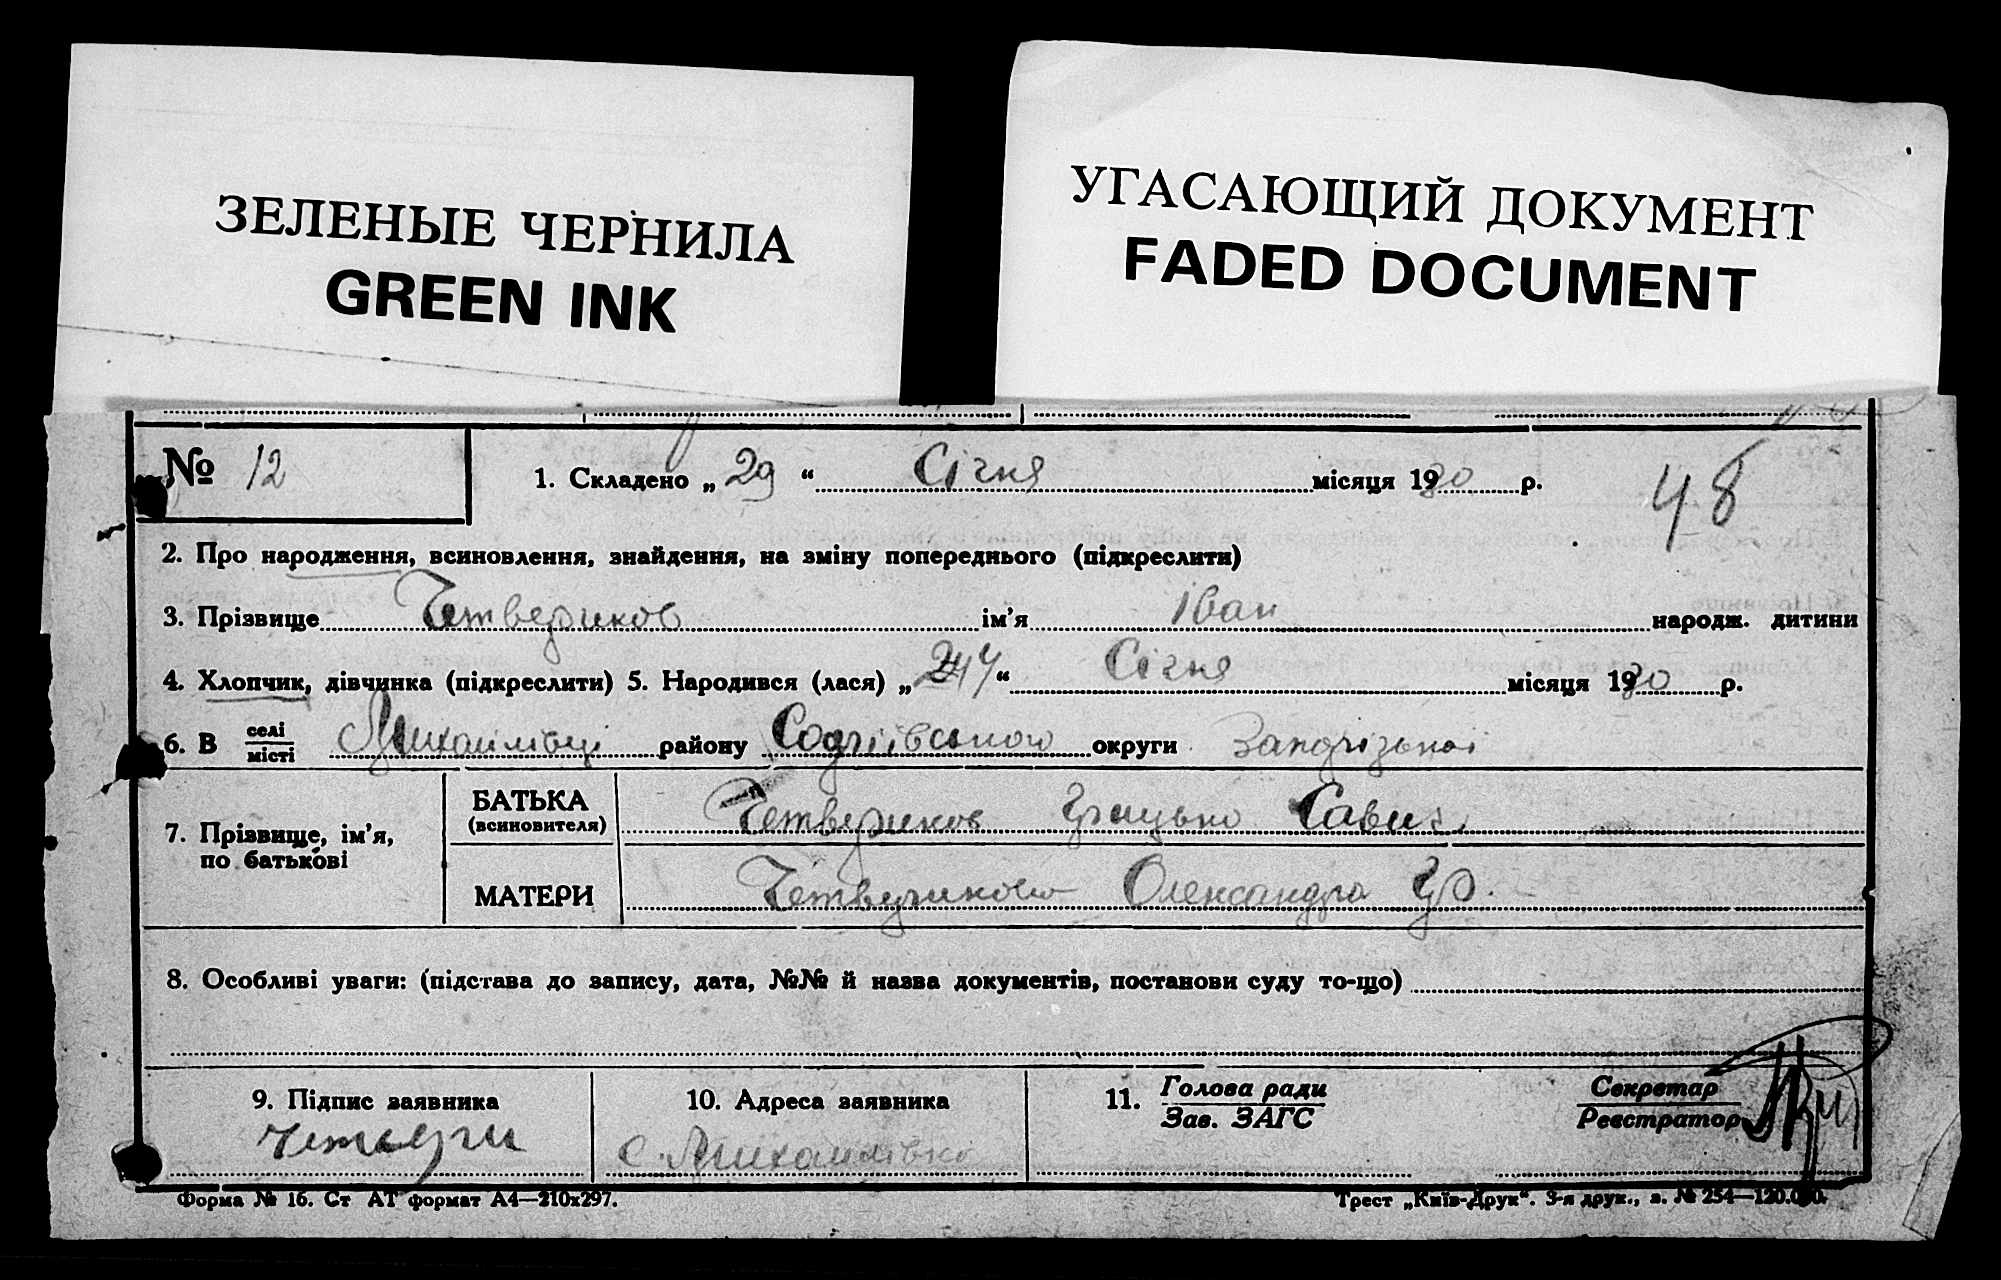 ЗЕЛЕНЫЕ ЧЕРНИЛА
GREEN INK
УГАСАЮЩИЙ ДОКУМЕНТ
FADED DOCUMENT
№ 12
1. Складено „ 29 “ Січня місяця 1930 р.
48
2. Про народження, всиновлення, знайдення, на зміну попереднього (підкреслити)
3. Прізвище Четвериков ім’я Іван народж. дитини
4. Хлопчик, дівчинка (підкреслити) 5. Народився (лася) „ “ Січня місяця 1930 р.
6. В селі/місті Михайлівці району округи Запорізької
7. Прізвище, ім’я, по батькові
БАТЬКА (всиновителя) Четвериков Грицько Савич
МАТЕРИ Четверикова Олександра Гр.
8. Особливі уваги: (підстава до запису, дата, №№ й назва документів, постанови суду то-що)
9. Підпис заявника
Четвери
10. Адреса заявника
с. Михайлівка
11. Голова ради
Зав. ЗАГС
Секретар
Реєстратор
Форма № 16. Ст АТ формат А4—210х297.
Трест „Київ-Друк“. 3-я друк., з. № 254—120.000.